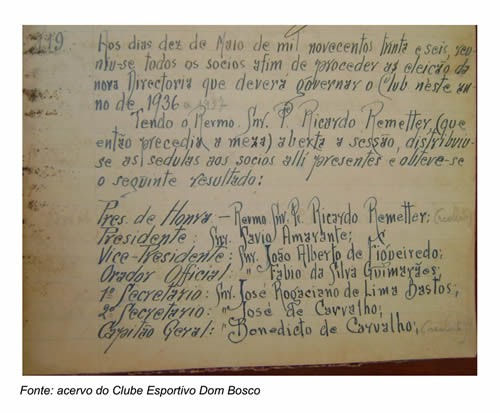 119
Aos dias dez de Maio de mil novecentos trinta e seis, reu-
niu-se todos os socios afim de proceder as eleição da
nova Directoria que deverá governar o Club neste an-
no de 1936 a 1937
Tendo o Rermo. Snr. P. Ricardo Remetter, (que
então precedia a meza) aberta a sessão, distribuiu-
se as sedulas aos socios alli presentes e obteve-se
o seguinte resultado:
Pres. de Honra - Rermo Snr. Pe. Ricardo Remetter;
Presidente: Snr. Flavio Amarante;
Vice-Presidente: Snr. João Alberto de Figueiredo;
Orador Official: " Fabio da Silva Guimarães;
1º Secretario: Snr. José Rogaciano de Lima Bastos;
2º Secretario: " José de Carvalho;
Capitão Geral: " Benedicto de Carvalho;
Fonte: acervo do Clube Esportivo Dom Bosco